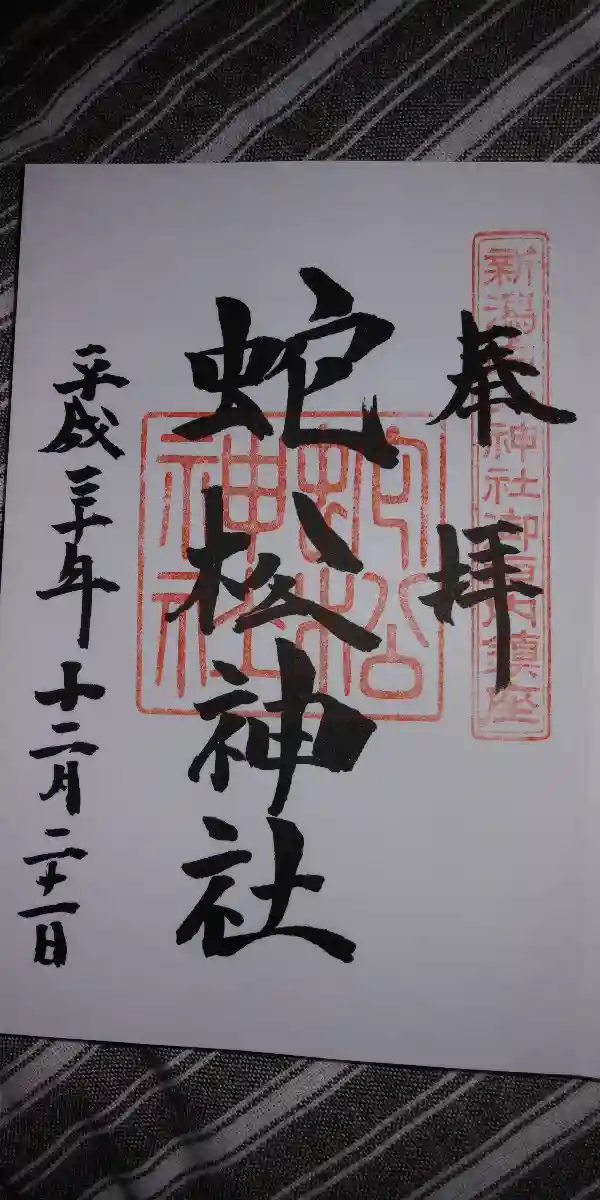 奉拝
新潟
神社御
鎮座
蛇松神社
蛇松
神社
平成三十年十二月二十一日